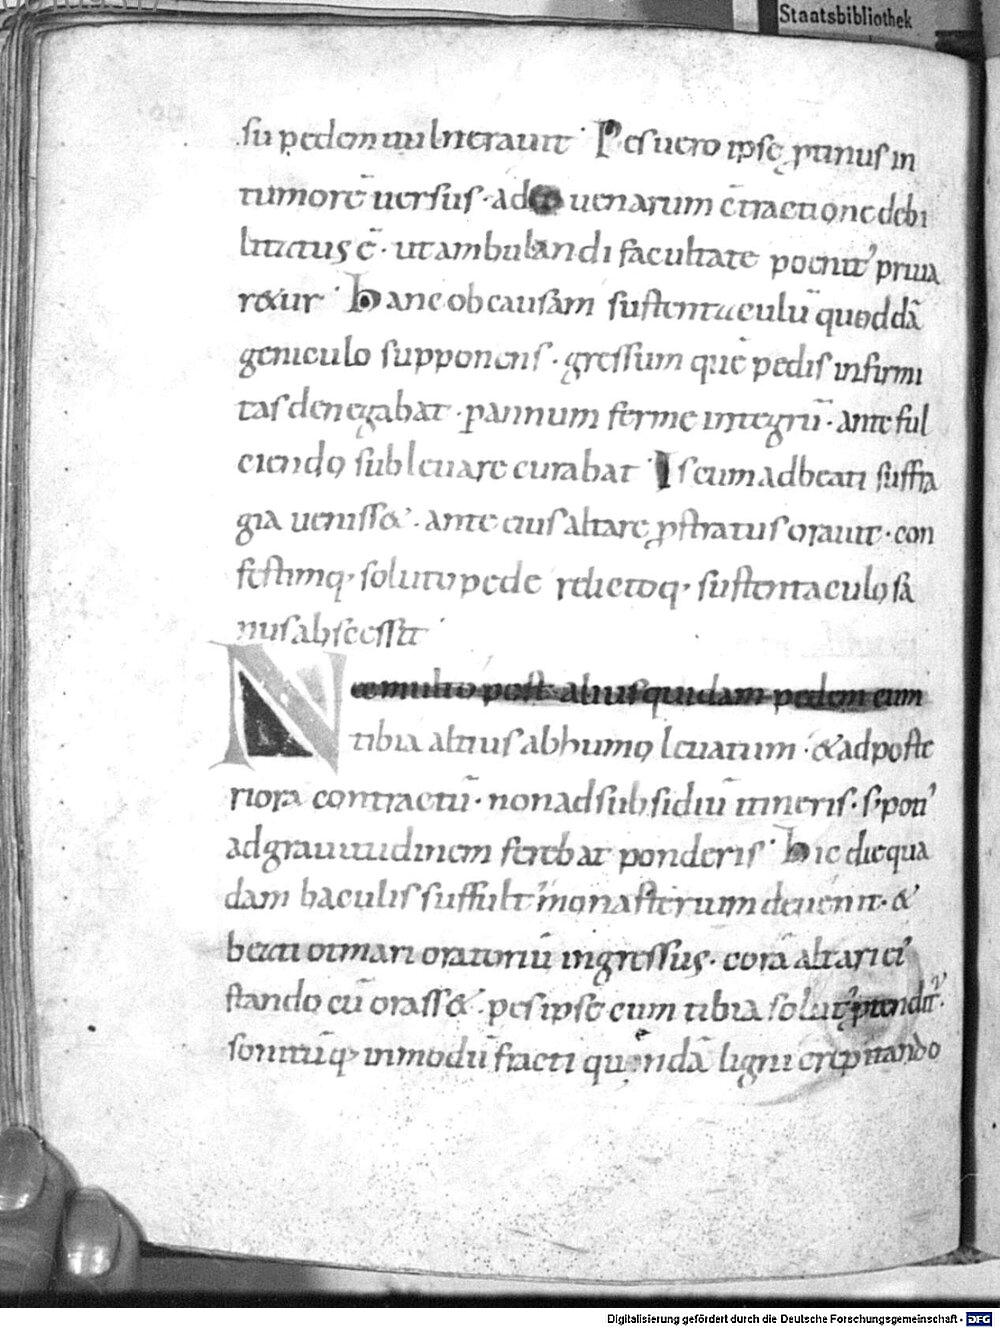 Staatsbibliothek
su pedem uulnerauit · Pes uero ipsę ꝓtinus in
tumorē uersus · adeo uenarum c̄tractione debi
litatus ē · ut ambulandi facultate poenit᾽ priua
r&ur · Hanc ob causam sustentaculū quoddā
geniculo supponens · gressum quē pedis infirmi
tas denegabat · pannum ferme integrū · ante ful
ciendo subleuare curabat · Is cum ad beati suffra
gia ueniss& · ante eius altare ꝓstratus orauit · con
festimq· soluto pede reiectoq· sustentaculo sa
nus abscessit ·
Nec multo post alius quidam pedem cum
tibia altius ab humo leuatum · & ad poste
riora contractū · non ad subsidiū itineris · s; poti᾽
ad grauitudinem ferebat ponderis · Hic die qua
dam baculis suffult᾽ monasterium deuenit · &
beati otmari oratoriū ingressus · corā altari ei᾽
stando cū orass& · pes ipse cum tibia solut᾽ ptendit᾽ ·
sonitūq· in modū fracti quendā ligni crepitando
Digitalisierung gefördert durch die Deutsche Forschungsgemeinschaft - DFG